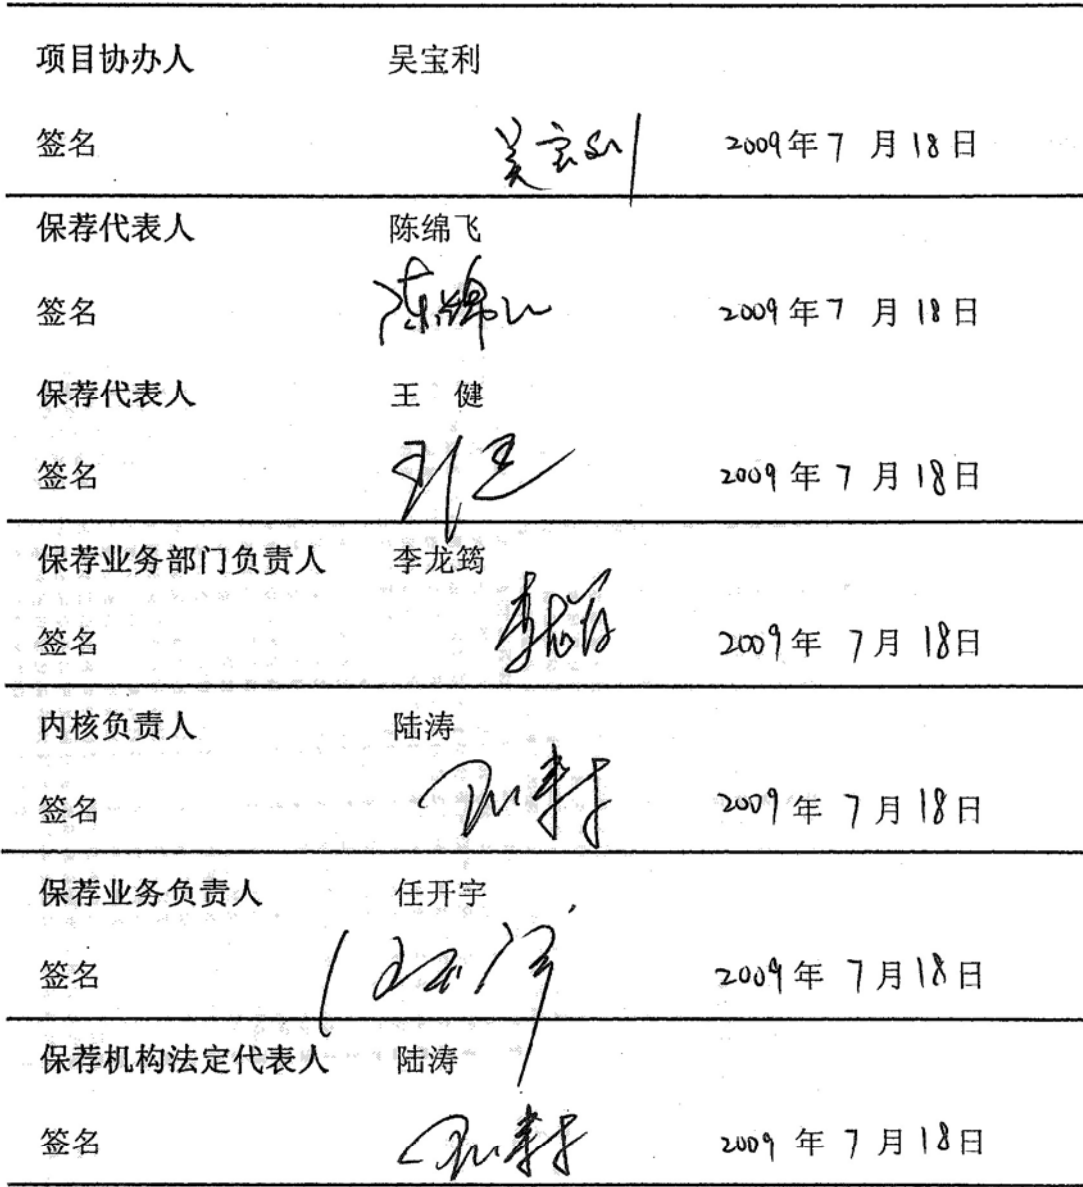 项目协办人 吴宝利
签名 吴宝利 2009年7月18日
保荐代表人 陈绵飞
签名 陈绵飞 2009年7月18日
保荐代表人 王 健
签名 2009年7月18日
保荐业务部门负责人 李龙筠
签名 李龙筠 2009年7月18日
内核负责人 陆涛
签名 2009年7月18日
保荐业务负责人 任开宇
签名 任开宇 2009年7月18日
保荐机构法定代表人 陆涛
签名 2009年7月18日